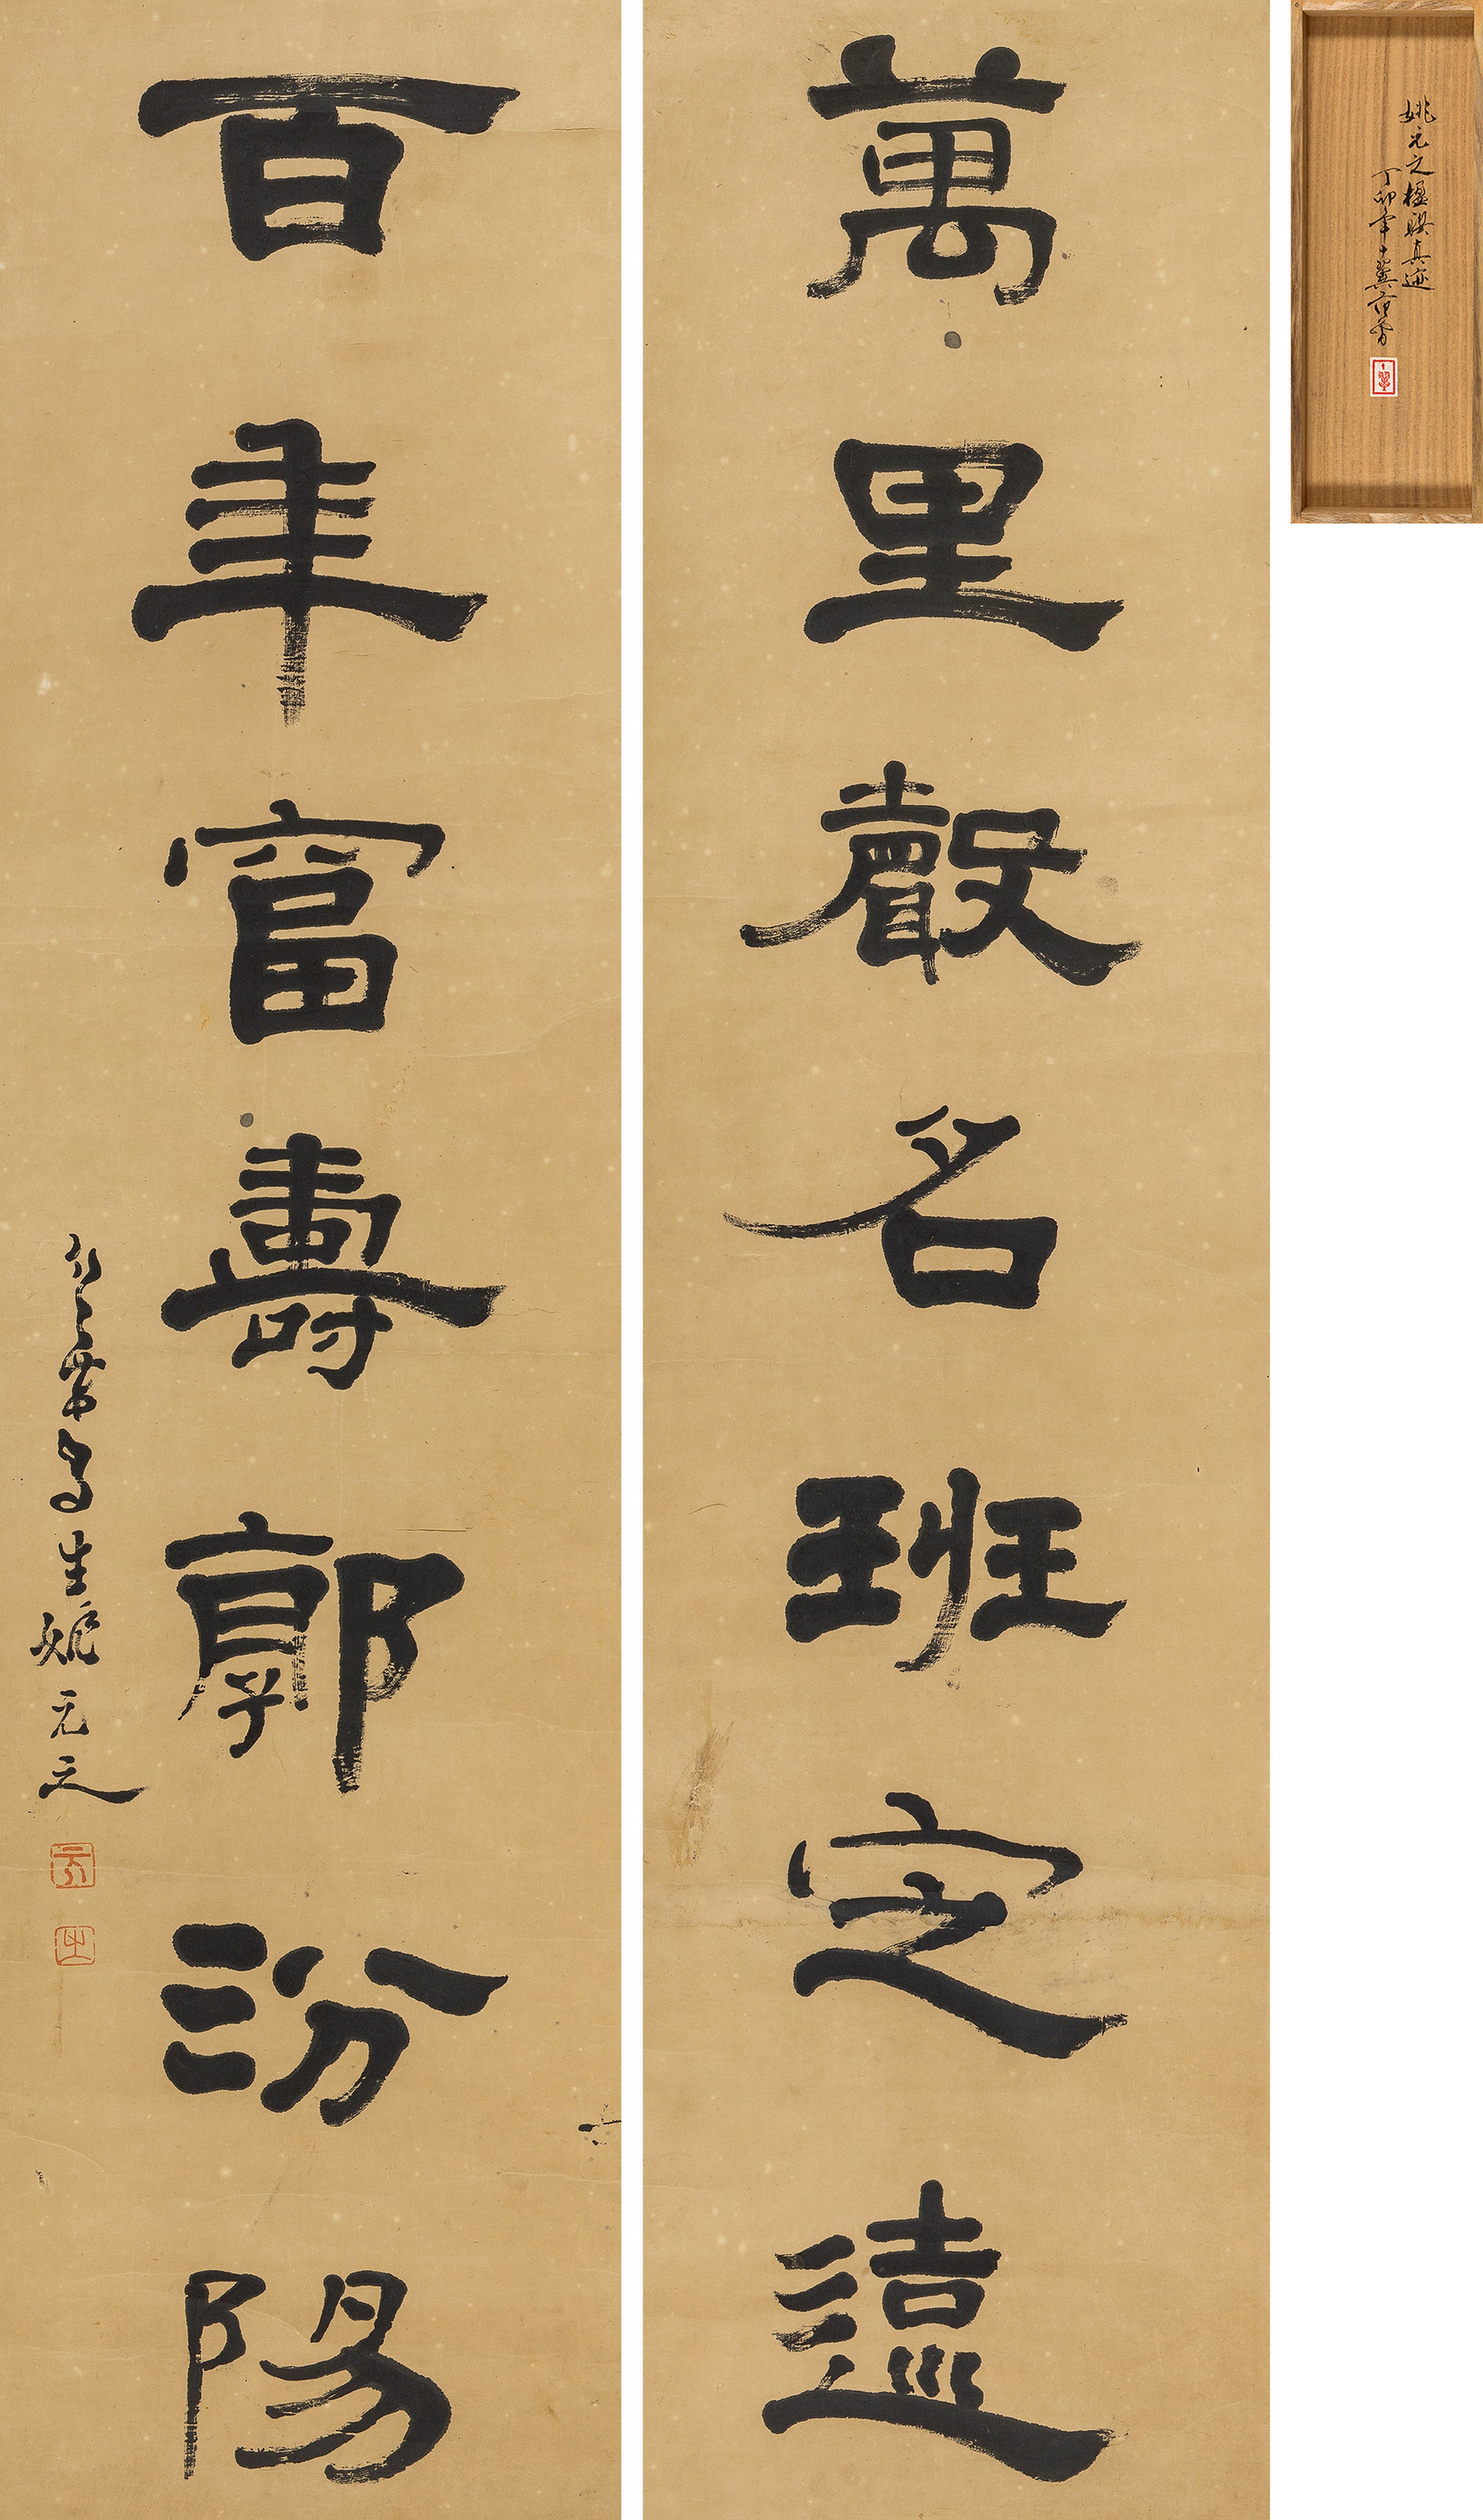 萬里聲名班定遠
百年富壽郭汾陽
生姚元之
元
之
姚元之楹聯真迹
丁卯年